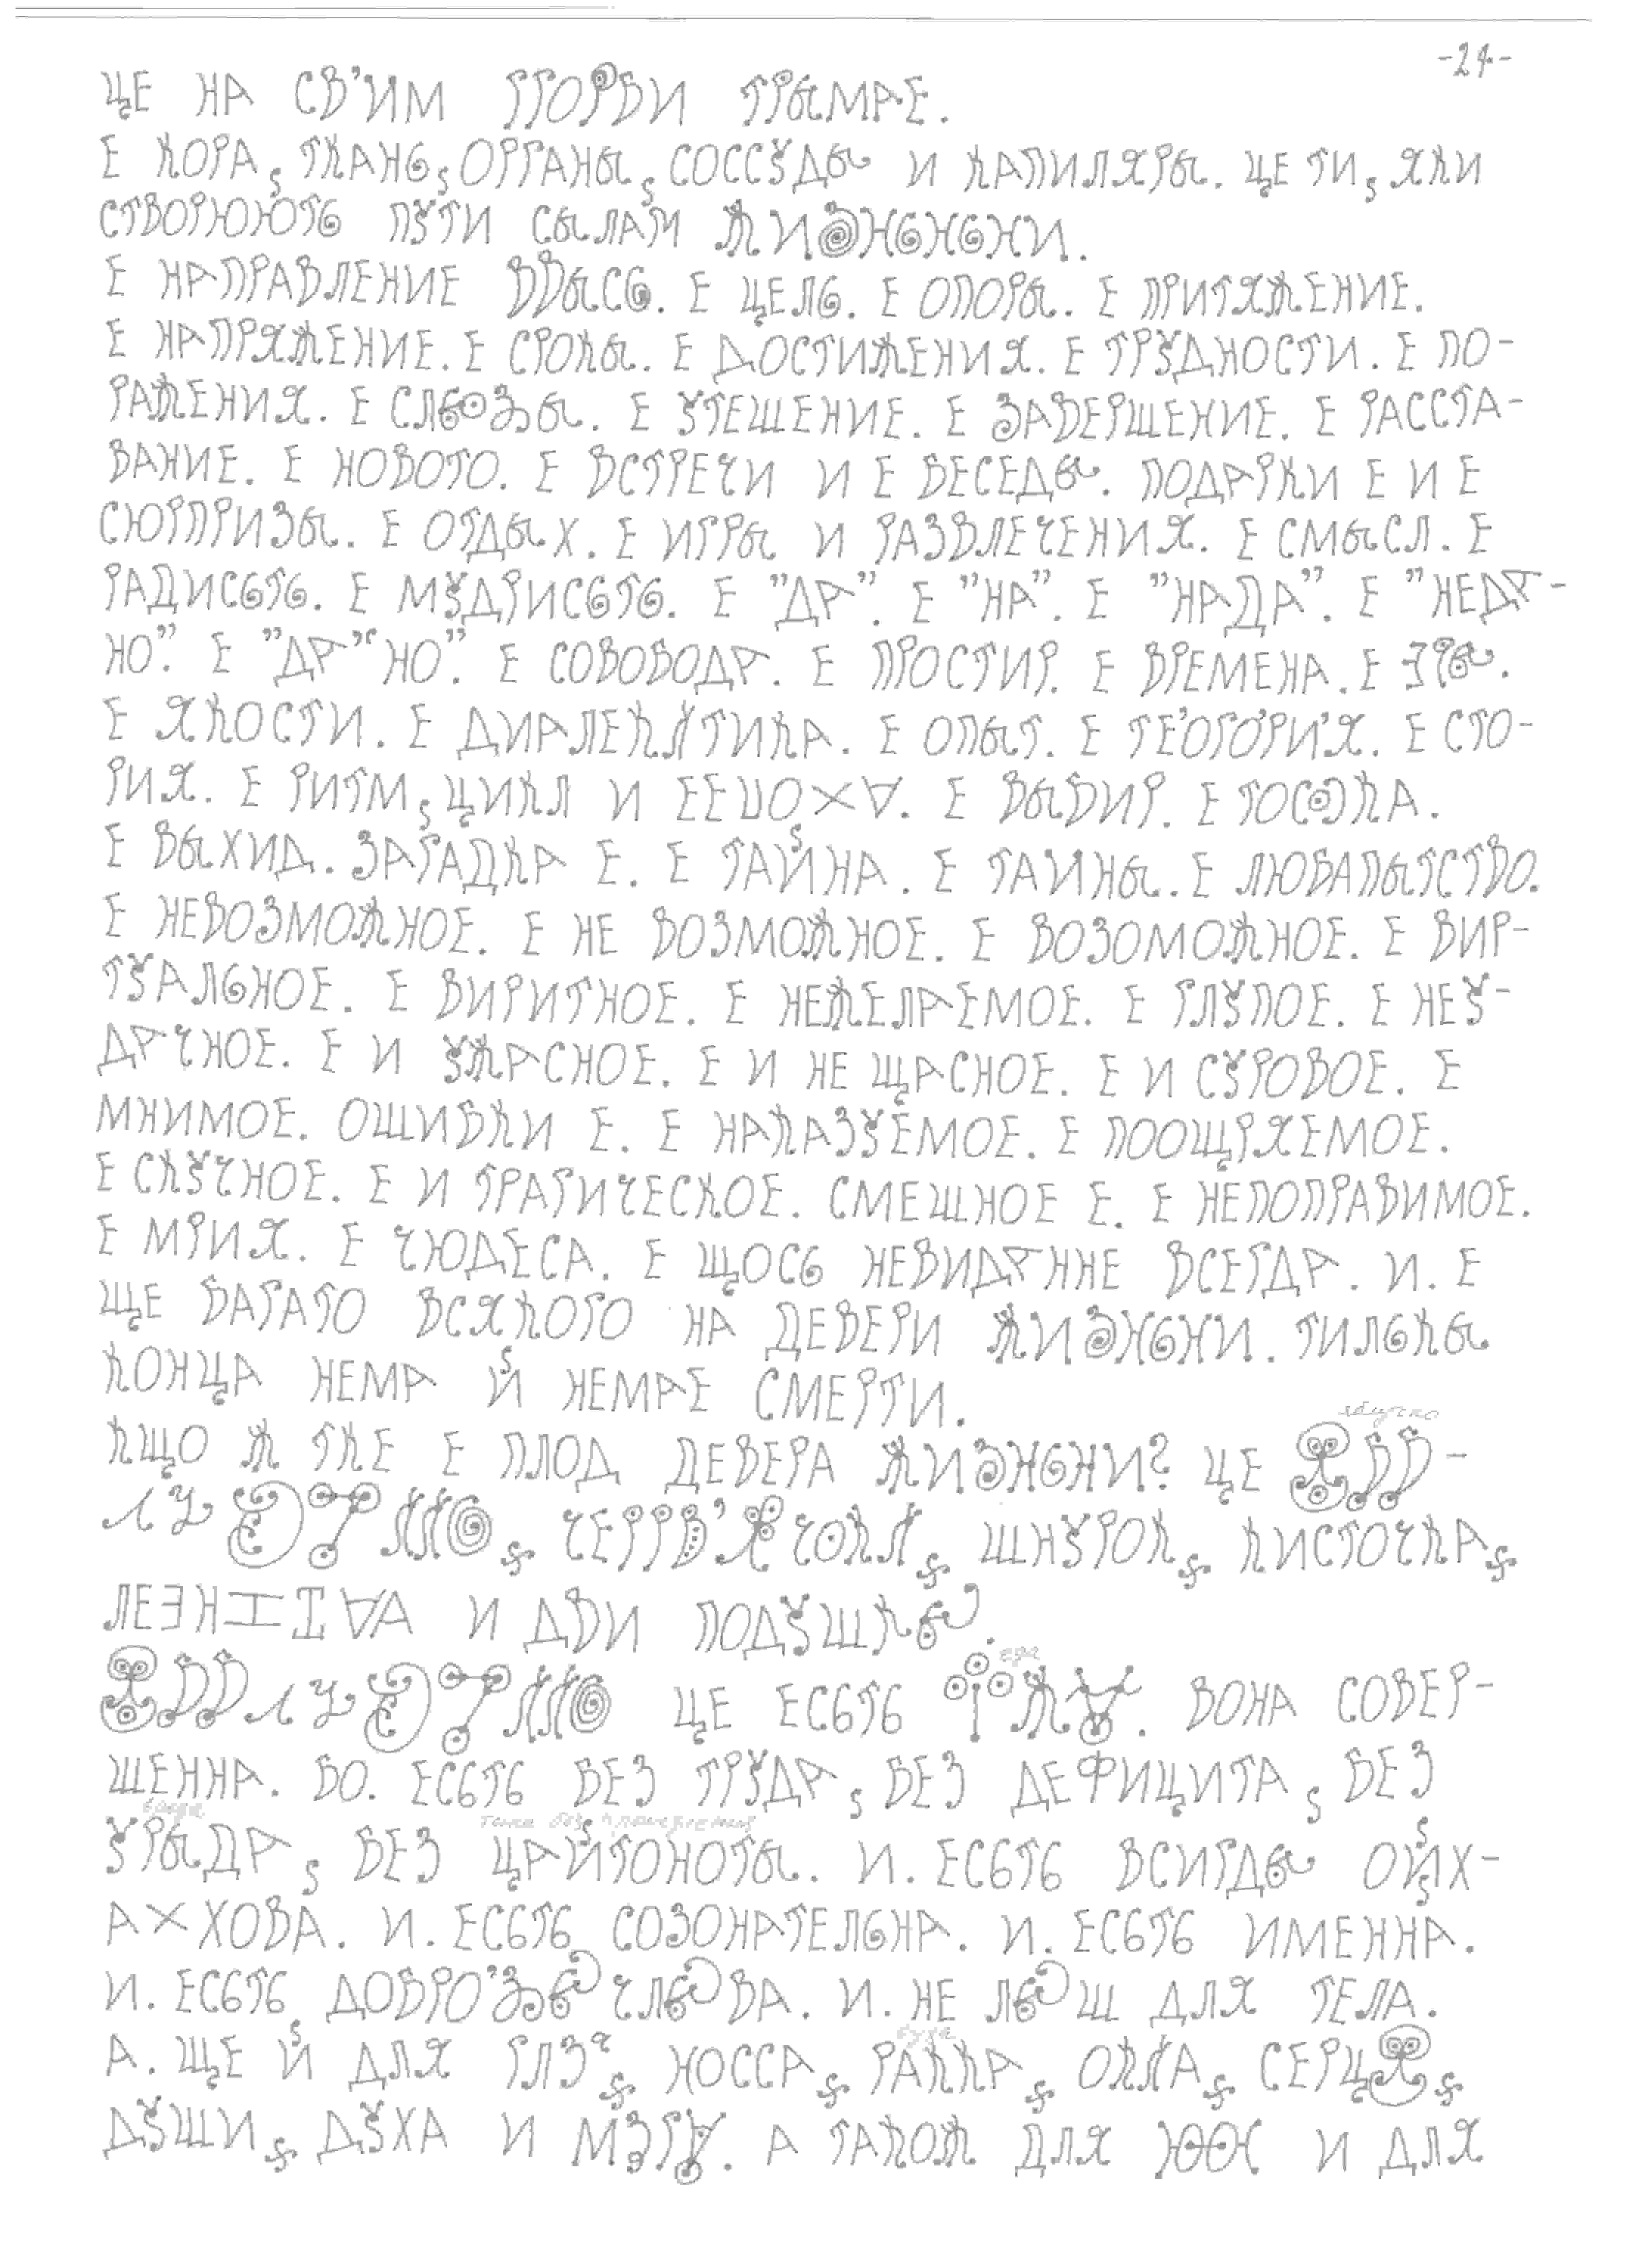 -24-
ЦЕ НА СВ'ИМ ГГОРБИ ТРЫМАЕ.
Е КОРА, ТКАНЬ, ОРГАНЫ, СОССУДЫ И КАПИЛЯРЫ. ЦЕ ТИ, ЯКИ
СТВОРЮЮТЬ ПУТИ СЫЛАМ ЖИЗНЬНЬНИ.
Е НАПРАВЛЕНИЕ ВВЫСЬ. Е ЦЕЛЬ. Е ОПОРЫ. Е ПРИТЯЖЕНИЕ.
Е НАПРЯЖЕНИЕ. Е СРОКЫ. Е ДОСТИЖЕНИЯ. Е ТРУДНОСТИ. Е ПО-
РАЖЕНИЯ. Е УТЕШЕНИЕ. Е ЗАВЕРШЕНИЕ. Е РАССТА-
ВАНИЕ. Е НОВОГО. Е ВСТРЕЧИ И Е БЕСЕДЫ. ПОДАРКИ Е И Е
СЮРПРИЗЫ. Е ОТДЫХ. Е ИГРЫ И РАЗВЛЕЧЕНИЯ. Е СМЫСЛ. Е
РАДИСЬТЬ. Е МУДРИСЬТЬ. Е "ДА". Е "НА". Е "НАДА". Е "НЕДА-
НО". Е "ДА""НО". Е СОВОБОДА. Е ПРОСТИР. Е ВРЕМЕНА. Е ЭРЫ.
Е ЯКОСТИ. Е ДИАЛЕККТИКА. Е ОПЫТ. Е ТЕ'ОГО'РИ'Я. Е СТО-
РИЯ. Е РИТМ, ЦИКЛ И Е ВЫБИР. Е
Е ВЫХИД. ЗАГАДКА Е. Е ТАЙНА. Е ТАИНЫ. Е ЛЮБАПЫТСТВО.
Е НЕВОЗМОЖНОЕ. Е НЕ ВОЗМОЖНОЕ. Е ВОЗОМОЖНОЕ. Е ВИР-
ТУАЛЬНОЕ. Е ВИРИТНОЕ. Е НЕЖЕЛАЕМОЕ. Е ГЛУПОЕ. Е НЕУ-
ДАЧНОЕ. Е И УЖАСНОЕ. Е И НЕ ЩАСНОЕ. Е И СУРОВОЕ. Е
МНИМОЕ. ОШИБКИ Е. Е НАКАЗУЕМОЕ. Е ПООЩРЯЕМОЕ.
Е СКУЧНОЕ. Е И ТРАГИЧЕСКОЕ. СМЕШНОЕ Е. Е НЕПОПРАВИМОЕ.
Е МРИЯ. Е ЧЮДЕСА. Е ЩОСЬ НЕВИДАННЕ ВСЕГДА. И. Е
ЩЕ БАГАТО ВСЯКОГО НА ДЕВЕРИ ЖИЗНЬНИ. ТИЛЬКЫ
КОНЦА НЕМА Й НЕМАЕ СМЕРТИ.
КЩО Ж ТКЕ Е ПЛОД ДЕВЕРА ЖИЗНЬНИ? ЦЕ
ШНУРОК, КИСТОЧКА,
И ДВИ
ЦЕ ЕСЬТЬ ВОНА СОВЕР-
ШЕННА. БО. ЕСЬТЬ БЕЗ ТРУДА, БЕЗ ДЕФИЦИТА, БЕЗ
УРЫДА, БЕЗ ЦАЙТОНОТЫ. И. ЕСЬТЬ ВСИГДЫ ОЙХ-
АХХОВА. И. ЕСЬТЬ СОЗОНАТЕЛЬНА. И. ЕСЬТЬ ИМЕННА.
И. ЕСЬТЬ И. НЕ ДЛЯ ТЕЛА.
А. ЩЕ Й ДЛЯ НОССА, РАККА,
ДУШИ, ДУХА И А ТАКОЖ ДЛЯ И ДЛЯ